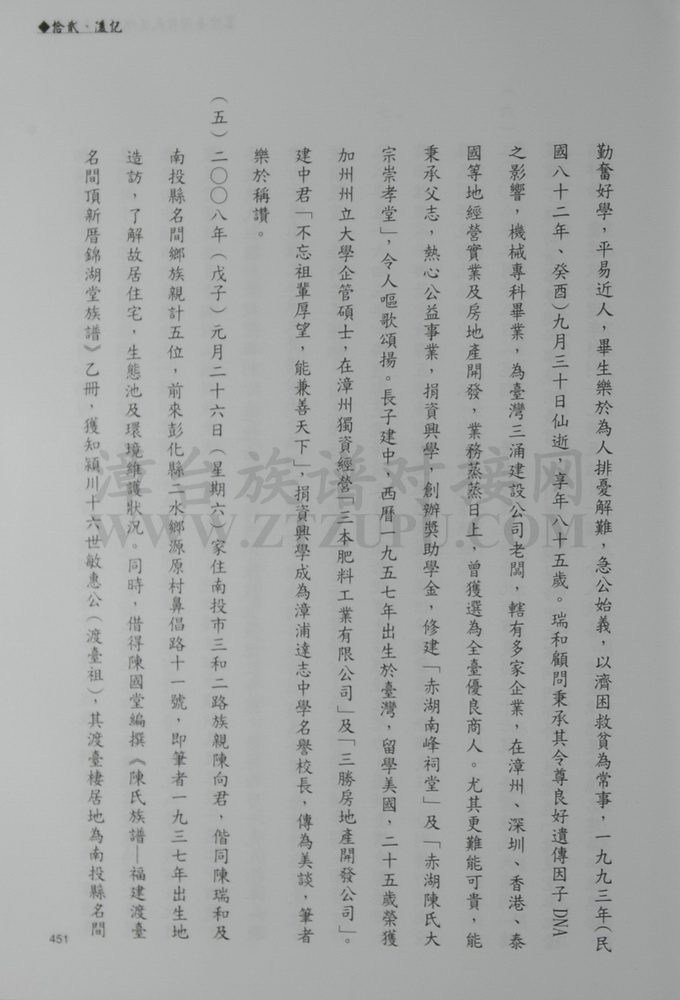 ◆拾貳、滙記
勤奮好學，平易近人，畢生樂於為人排憂解難，急公始義，以濟困救貧為常事，一九九三年（民
國八十二年、癸酉）九月三十日仙逝，享年八十五歲。瑞和顧問秉承其令尊良好遺傳因子DNA
之影響，機械專科畢業，為臺灣三涌建設公司老闆，轄有多家企業，在漳州、深圳、香港、泰
國等地經營實業及房地產開發，業務蒸蒸日上，曾獲選為全臺優良商人。尤其更難能可貴，能
秉承父志，熱心公益事業，捐資興學，創辦獎助學金，修建「赤湖南峰祠堂」及「赤湖陳氏大
宗崇孝堂」，令人嘔歌頌揚。長子建中，西曆一九五七年出生於臺灣，留學美國，二十五歲榮獲
加州州立大學企管碩士，在漳州獨資經營「三本肥料工業有限公司」及「三勝房地產開發公司」。
建中君「不忘祖輩厚望，能兼善天下」，捐資興學成為漳浦達志中學名譽校長，傳為美談，筆者
樂於稱讚。
（五）二〇〇八年（戊子）元月二十六日（星期六）家住南投市三和二路族親陳向君，偕同陳瑞和及
南投縣名間鄉族親計五位，前來彭化縣二水鄉源原村鼻倡路十一號，即筆者一九三七年出生地
造訪，了解故居住宅，生態池及環境維護狀況 同時，借得陳國堂編撰《陳氏族譜—福建渡臺
名間頂新厝錦湖堂族譜》乙冊，獲知穎川十六世敏惠公（渡臺祖），其渡臺棲居地為南投縣名間
451
漳台族谱对接网
WWW.ZTZUPU.COM